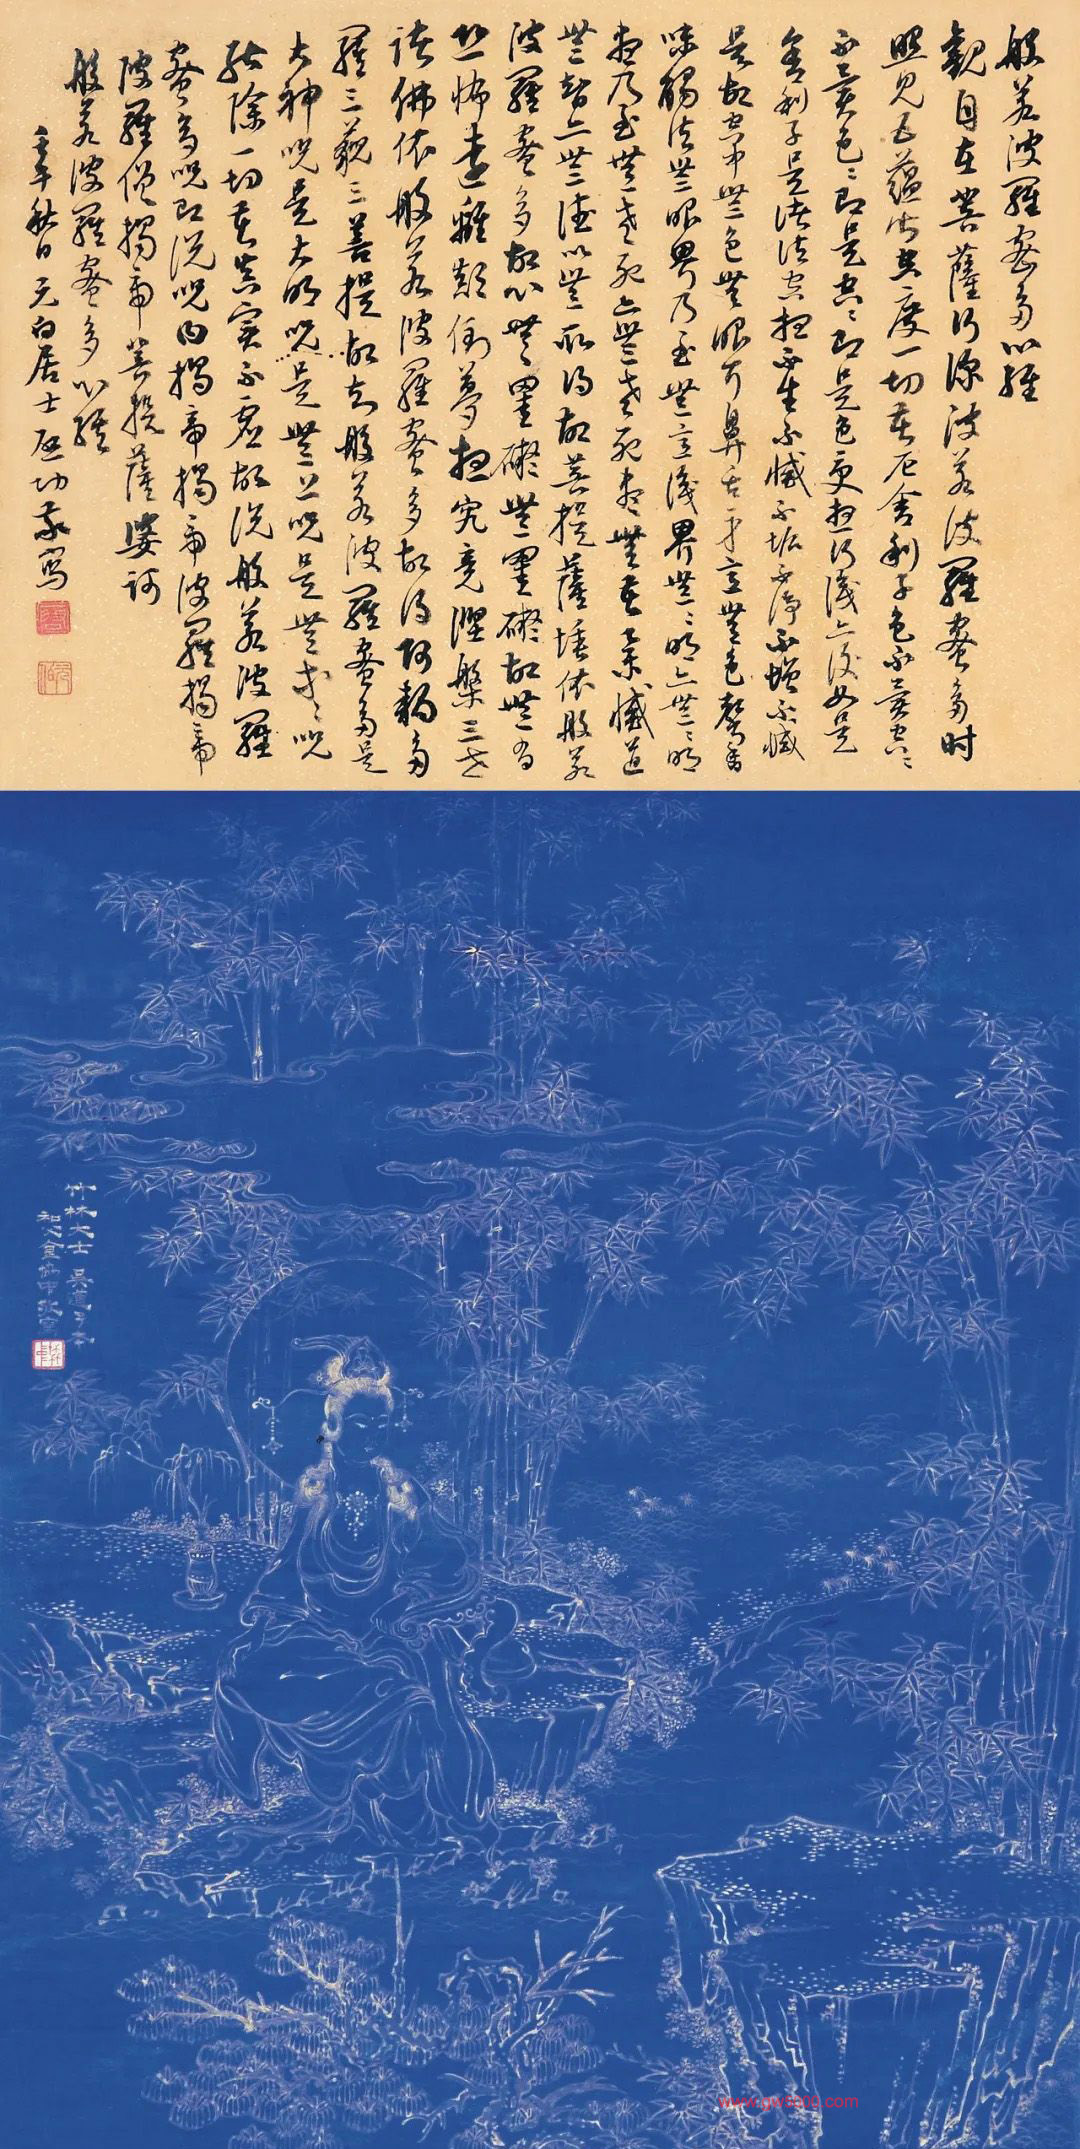 般若波羅蜜多心經
觀自在菩薩行深般若波羅蜜多時
照見五蘊皆空度一切苦厄舍利子色不異空〻
不異色〻即是空〻即是色受想行識亦復如是
舍利子是諸法空相不生不滅不垢不淨不增不減
是故空中無色無眼耳鼻舌身意無色聲香
味觸法無眼界乃至無意識界無〻明亦無〻明
盡乃至無老死亦無老死盡無苦集滅道
無智亦無得以無所得故菩提薩埵依般若
波羅蜜多故心無罣礙無罣礙故無有
恐怖遠離顛倒夢想究竟涅槃三世
諸佛依般若波羅蜜多故得阿耨多
羅三藐三菩提故知般若波羅蜜多是
大神咒是大明咒是無上咒是無等〻咒
能除一切苦真實不虛故說般若波羅
蜜多咒即說咒曰揭帝揭帝波羅揭帝
波羅僧揭帝菩提薩婆訶
般若波羅蜜多心經
壬午秋日元白居士啟功敬寫
竹林大士 吳道子本
www.gw5000.com